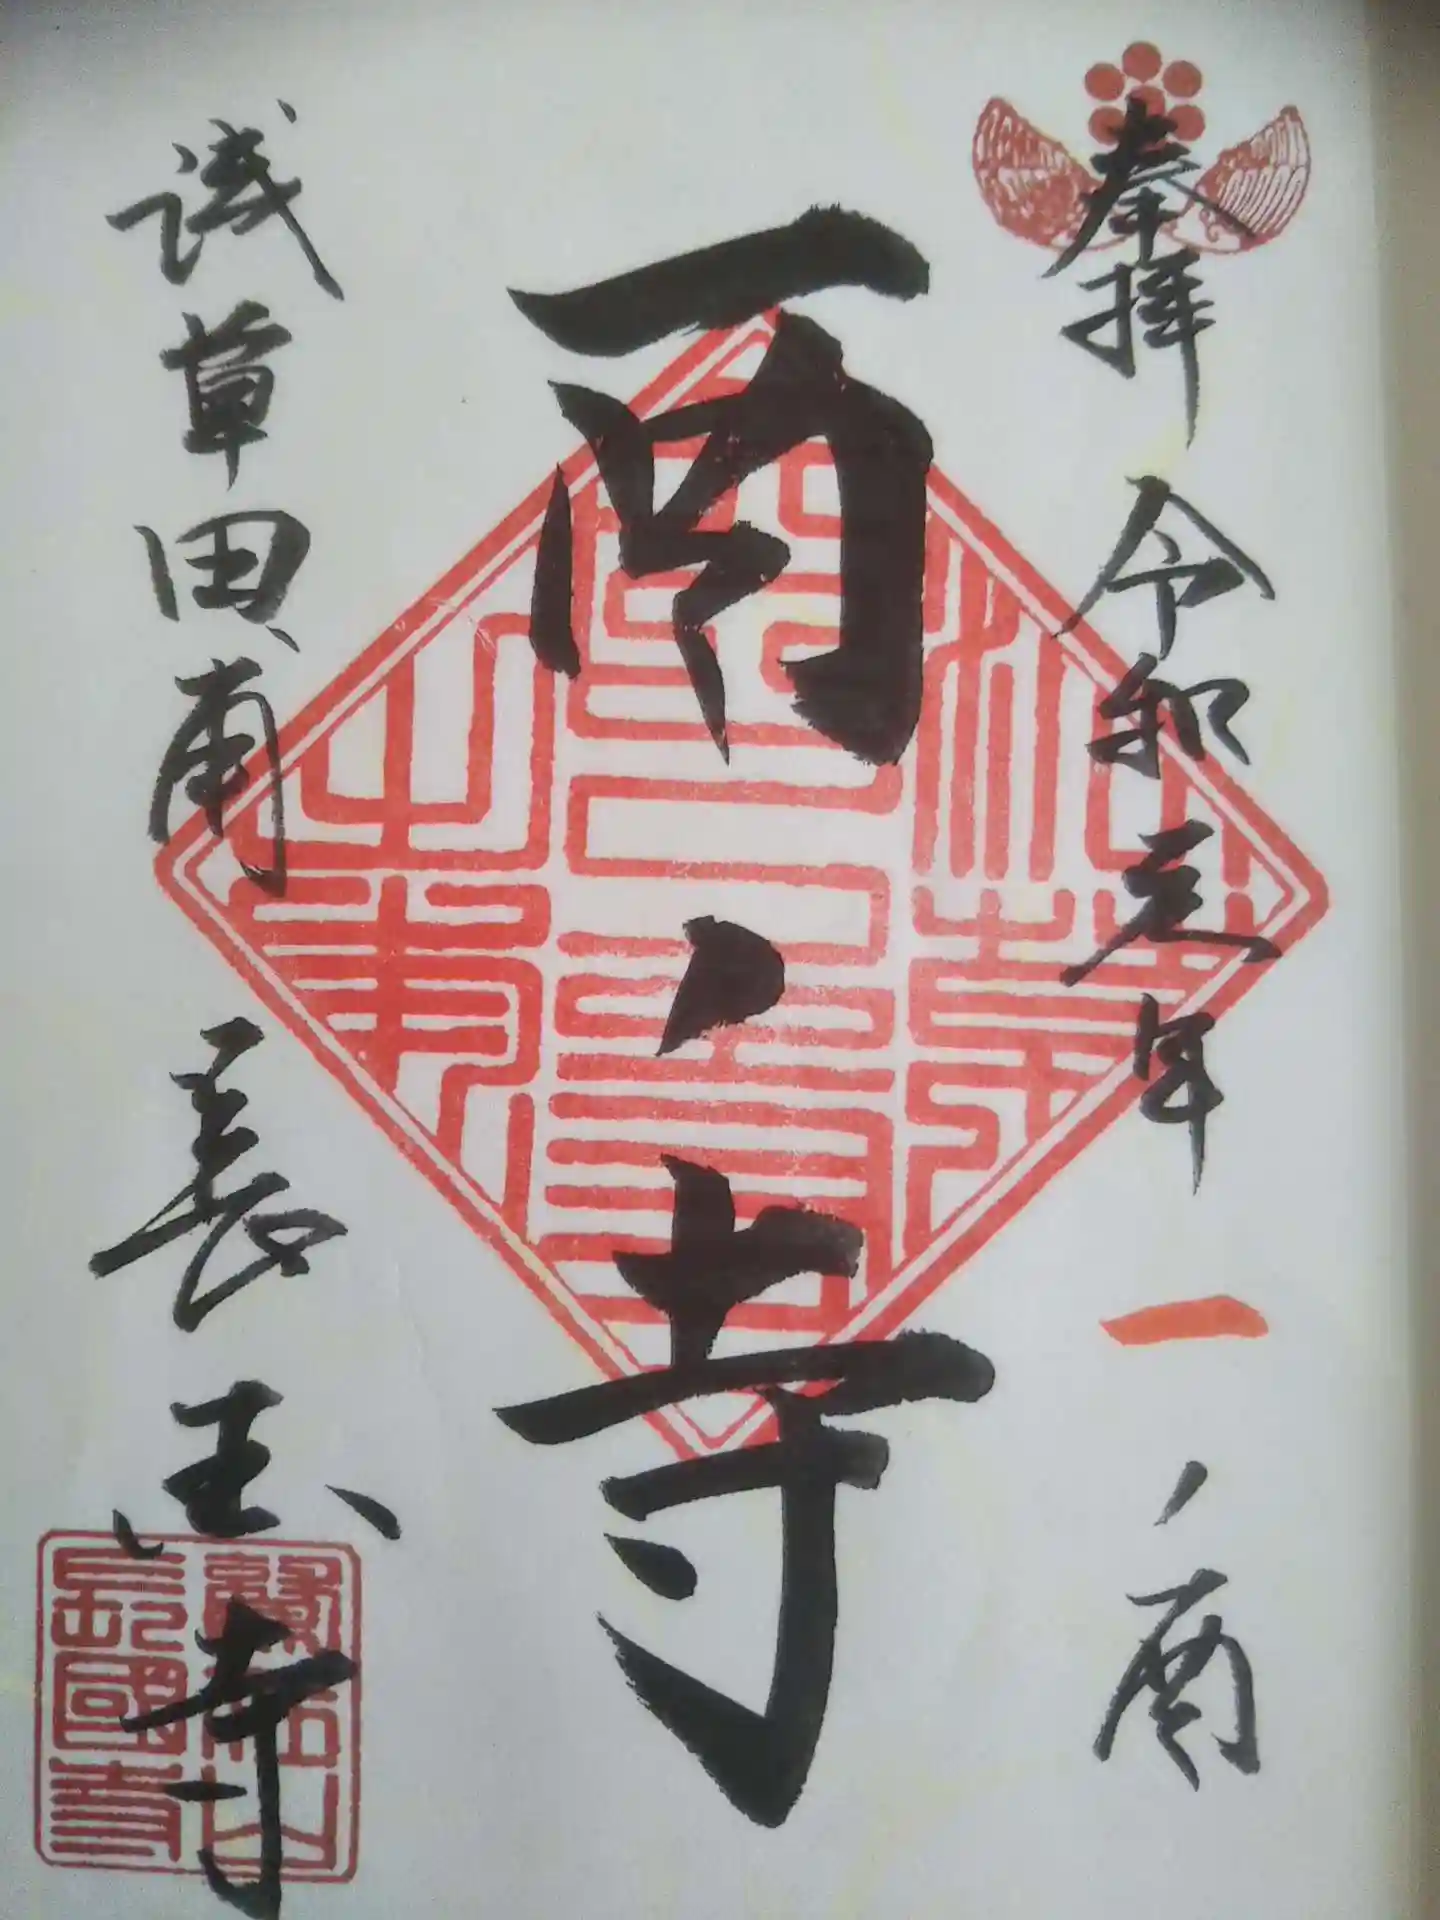 奉拝 令和元年 一ノ酉
酉ノ寺
浅草田甫 長国寺
鷲在山
長國寺